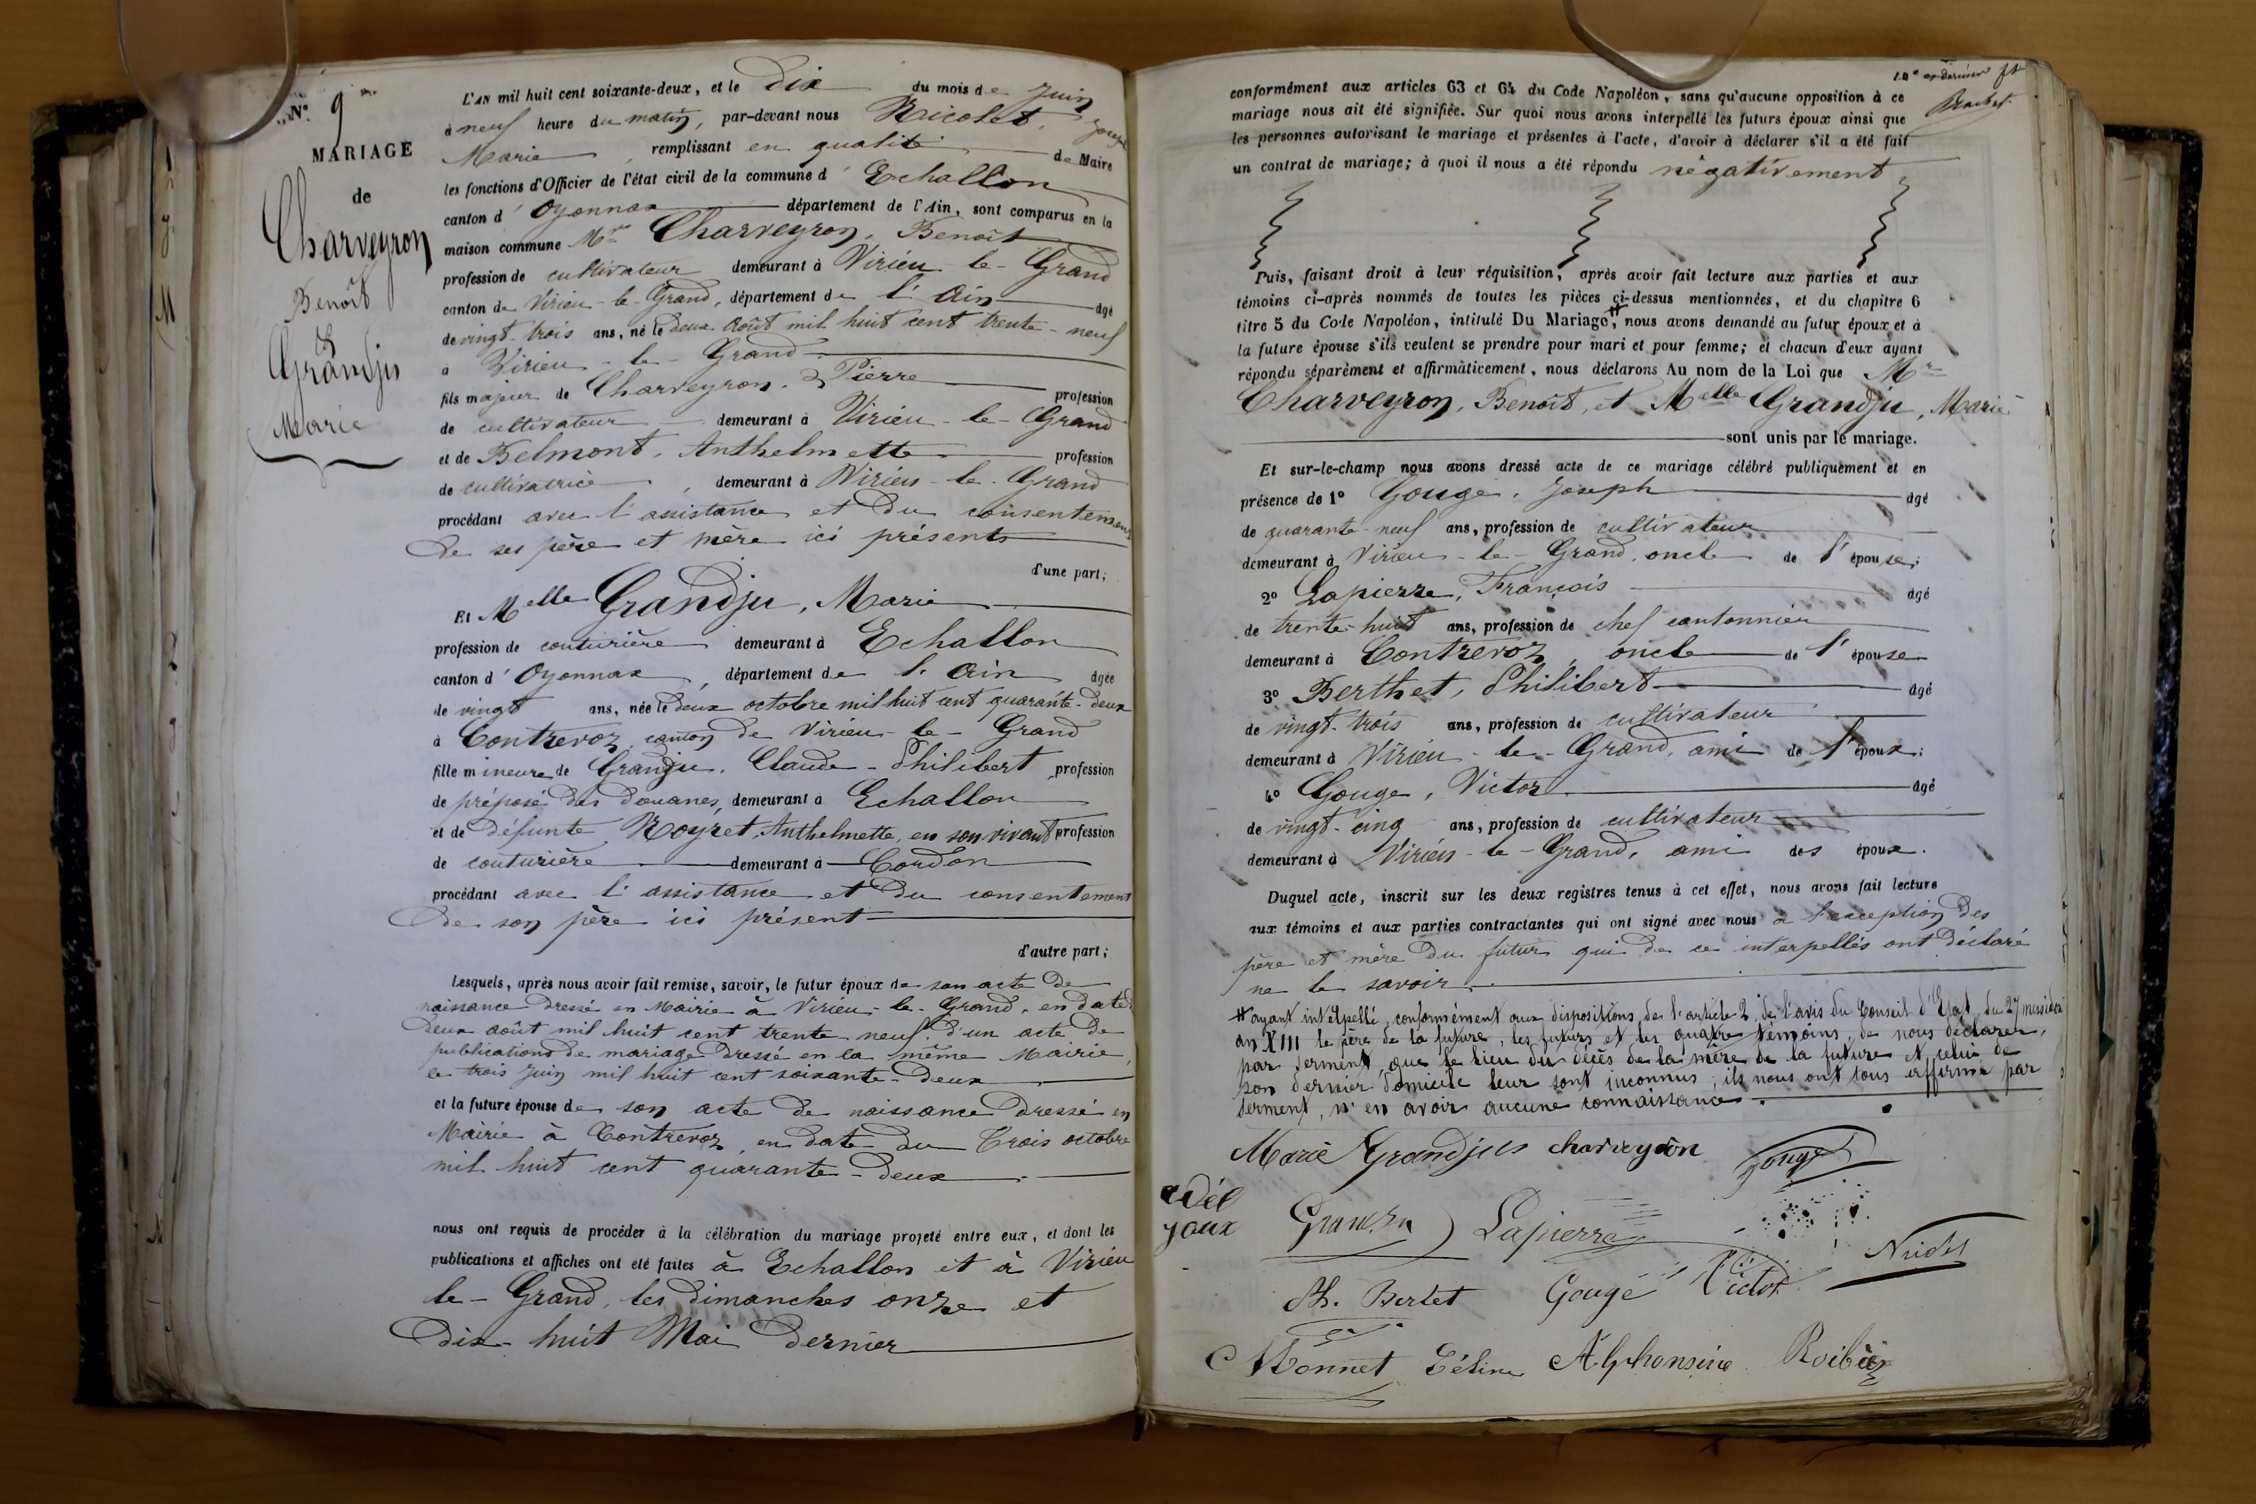 N° 9
MARIAGE
de
Charveyron
Benoît
et
Grandju
Marie
L'AN mil huit cent soixante-deux, et le dix du mois de Juin
à neuf heure du matin, par-devant nous Nicolet,
Marie remplissant en qualité de Maire
les fonctions d'Officier de l'état civil de la commune d' Echallon
canton d' Oyonnax département de l'Ain, sont comparus en la
maison commune Mr Charveyron, Benoît
profession de cultivateur demeurant à Virieu-le-Grand
canton de Virieu-le-Grand, département de l'Ain âgé
de vingt-trois ans, né le deux Août mil huit cent trente-neuf
à Virieu-le-Grand
fils majeur de Charveyron, Pierre profession
de cultivateur demeurant à Virieu-le-Grand
et de Belmont, Anthelmette profession
de cultivatrice, demeurant à Virieu-le-Grand
procédant avec l'assistance et du consentement
de ses père et mère ici présents
d'une part;
Et Melle Grandju, Marie
profession de couturière demeurant à Echallon
canton d' Oyonnax, département de l'Ain âgée
de vingt ans, née le deux octobre mil huit cent quarante-deux
à Contrevoz, canton de Virieu-le-Grand
fille mineure de Grandju, Claude-Philibert, profession
de préposé des douanes, demeurant à Echallon
et de défunte Royret, Anthelmette, en son vivant profession
de couturière demeurant à Cordon
procédant avec l'assistance et du consentement
de son père ici présent
d'autre part;
Lesquels, après nous avoir fait remise, savoir, le futur époux de son acte de
naissance dressé en Mairie à Virieu-le-Grand, en date
deux août mil huit cent trente neuf, d'un acte de
publications de mariage dressé en la même Mairie,
le trois Juin mil huit cent soixante-deux
et la future épouse de son acte de naissance dressé en
Mairie à Contrevoz, en date du trois octobre
mil huit cent quarante-deux
nous ont requis de procéder à la célébration du mariage projeté entre eux, et dont les
publications et affiches ont été faites à Echallon et à Virieu
le-Grand, les dimanches onze et
dix-huit Mai dernier
10e et dernier ft
conformément aux articles 63 et 64 du Code Napoléon, sans qu'aucune opposition à ce
mariage nous ait été signifiée. Sur quoi nous avons interpellé les futurs époux ainsi que
les personnes autorisant le mariage et présentes à l'acte, d'avoir à déclarer s'il a été fait
un contrat de mariage; à quoi il nous a été répondu négativement
Puis, faisant droit à leur réquisition, après avoir fait lecture aux parties et aux
témoins ci-après nommés de toutes les pièces ci-dessus mentionnées, et du chapitre 6
titre 5 du Code Napoléon, intitulé Du Mariage, # nous avons demandé au futur époux et à
la future épouse s'ils veulent se prendre pour mari et pour femme; et chacun d'eux ayant
répondu séparément et affirmativement, nous déclarons Au nom de la Loi que Mr
Charveyron, Benoît, et Melle Grandju, Marie
sont unis par le mariage.
Et sur-le-champ nous avons dressé acte de ce mariage célébré publiquement et en
présence de 1° Gouge, Joseph âgé
de quarante-neuf ans, profession de cultivateur
demeurant à Virieu-le-Grand, oncle de l'épouse;
2° Lapierre, François âgé
de trente-huit ans, profession de chef cantonnier
demeurant à Contrevoz, oncle de l'épouse
3° Berthet, Philibert âgé
de vingt-trois ans, profession de cultivateur
demeurant à Virieu-le-Grand, ami de l'époux;
4° Gouge, Victor âgé
de vingt-cinq ans, profession de cultivateur
demeurant à Virieu-le-Grand, ami des époux.
Duquel acte, inscrit sur les deux registres tenus à cet effet, nous avons fait lecture
aux témoins et aux parties contractantes qui ont signé avec nous à l'exception des
père et mère du futur qui de ce interpellés ont déclaré
ne le savoir.
# ayant interpellé, conformément aux dispositions de l'article 2 de l'avis du Conseil d'Etat du 27 messidor
an XIII le père de la future, les futurs et les quatre témoins, de nous déclarer,
par serment, que le lieu du décès de la mère de la future et celui de
son dernier domicile leur sont inconnus, ils nous ont tous affirmé par
serment, n'en avoir aucune connaissance.
Marie Grandjus charveyron Gouge
Grandju Lapierre
Nicolet
Ph. Bertet Gougé Victor
Monnet Céline Alphonsine